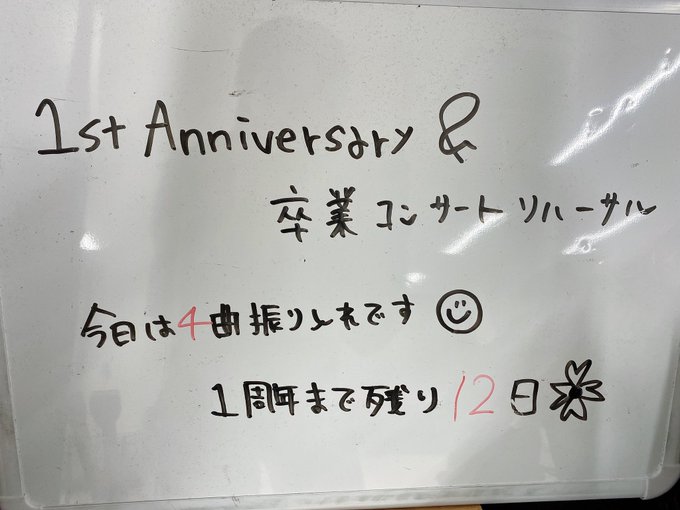 1st Anniversary &
卒業コンサートリハーサル
今日は4曲振り入れです
1周年まで残り12日